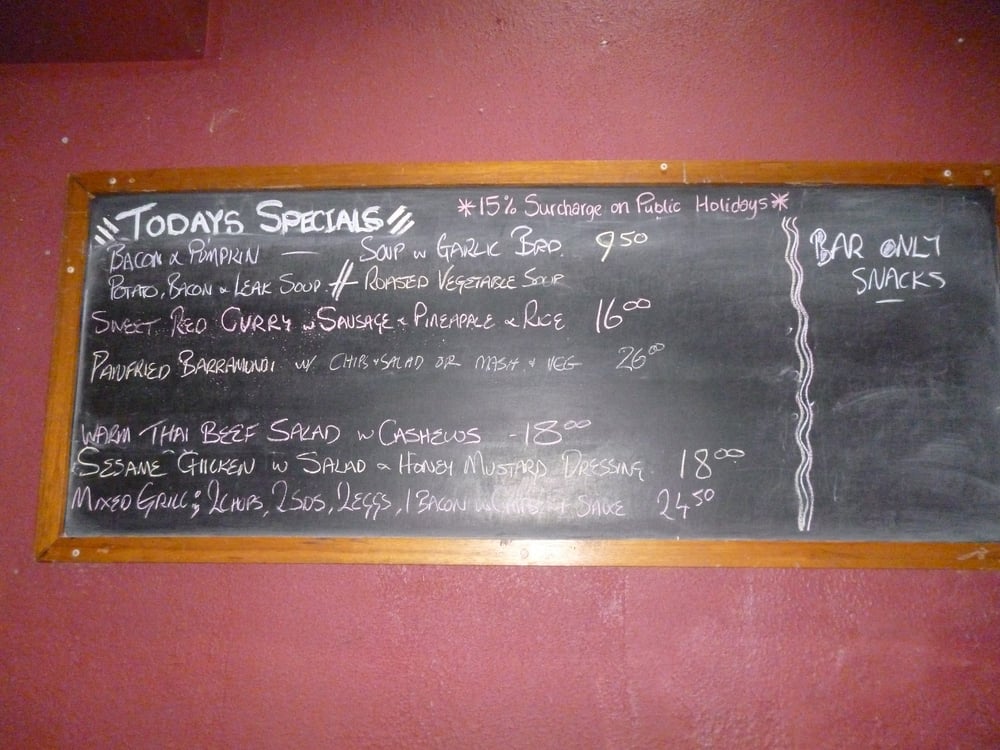 TODAYS SPECIALS
*15% Surcharge on Public Holidays*
BACON & PUMPKIN — SOUP w GARLIC BRD. 9 50
POTATO, BACON & LEAK SOUP // ROASTED VEGETABLE SOUP
SWEET RED CURRY w SAUSAGE & PINEAPPLE & RICE 16 00
PANFRIED BARRAMUNDI w/ CHIPS & SALAD OR MASH & VEG 26 00
WARM THAI BEEF SALAD w CASHEWS - 18 00
SESAME CHICKEN w SALAD & HONEY MUSTARD DRESSING 18 00
MIXED GRILL; 2 CHOPS, 2 SDS, 2 EGGS, 1 BACON w CHIPS & SAUCE 24 50
BAR ONLY
SNACKS